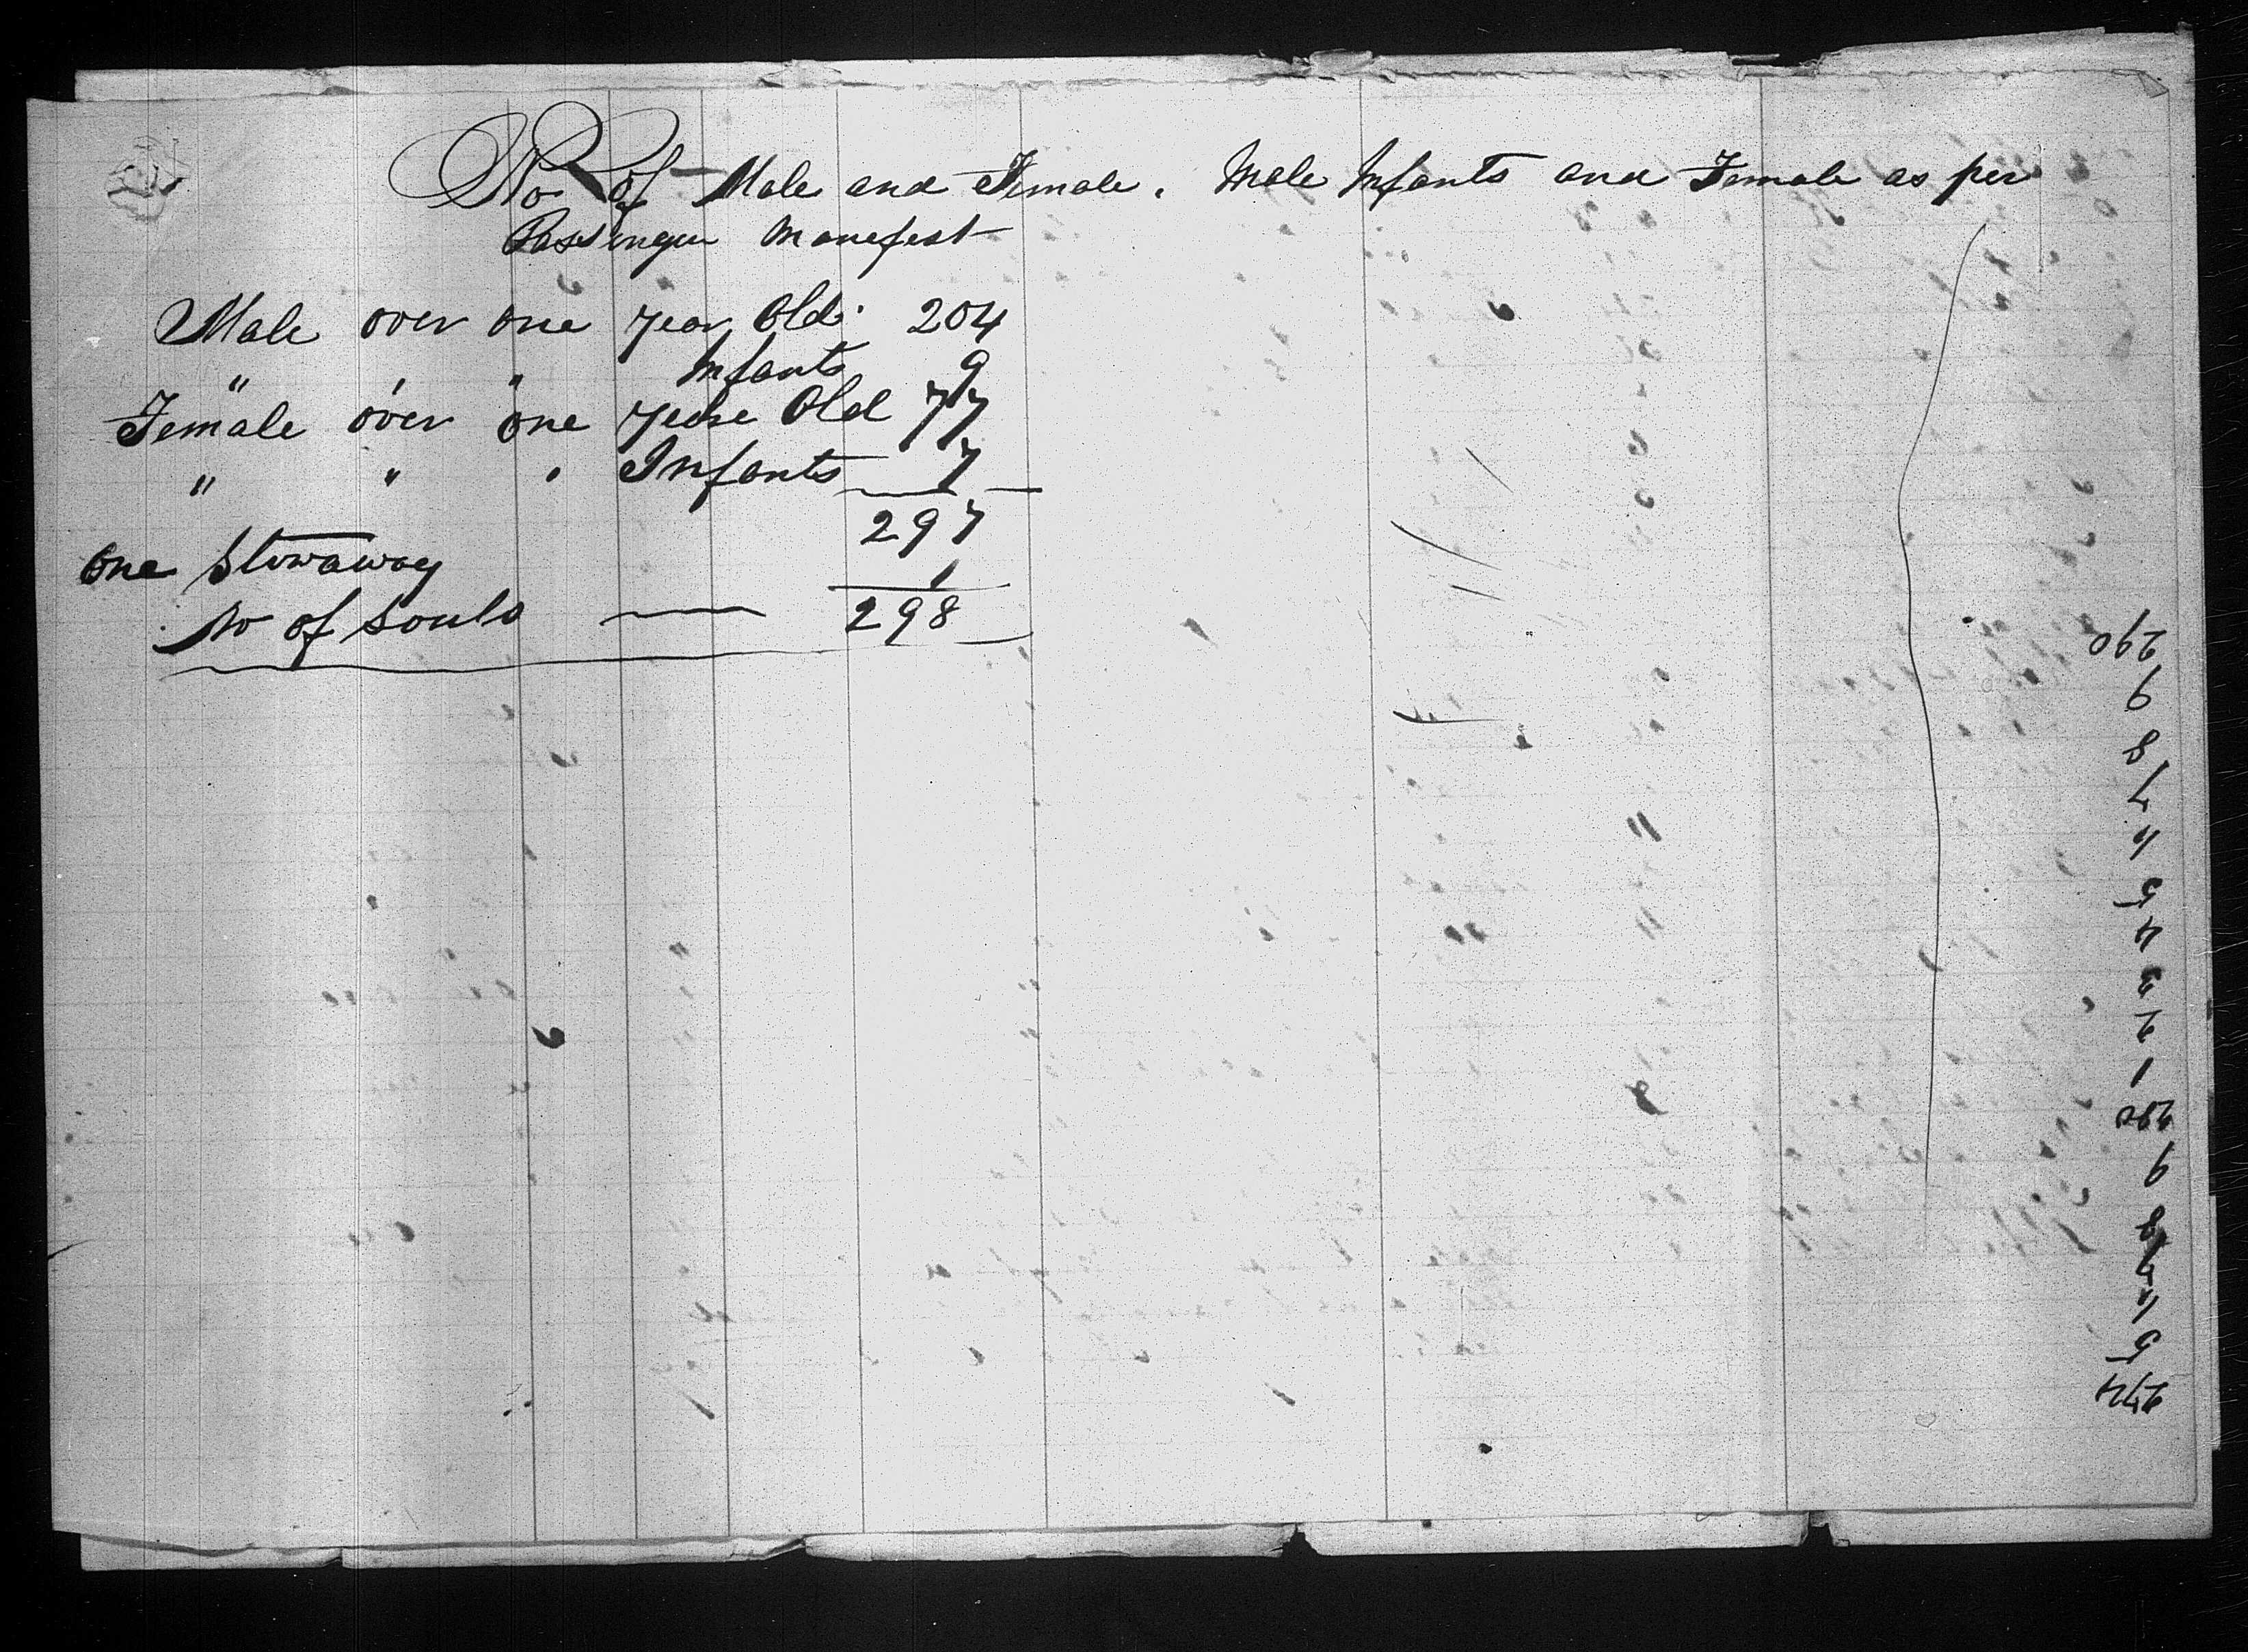 No of Male and Female. Male Infants and Female as per
Passenger Manefest
Male over one year Old. 204
" " " Infants 9
Female over one year Old 77
" " " Infants 7
297
One Stowaway 1
No of Souls 298
290
9
8
7
6
5
4
3
2
1
280
9
8
7
6
5
274